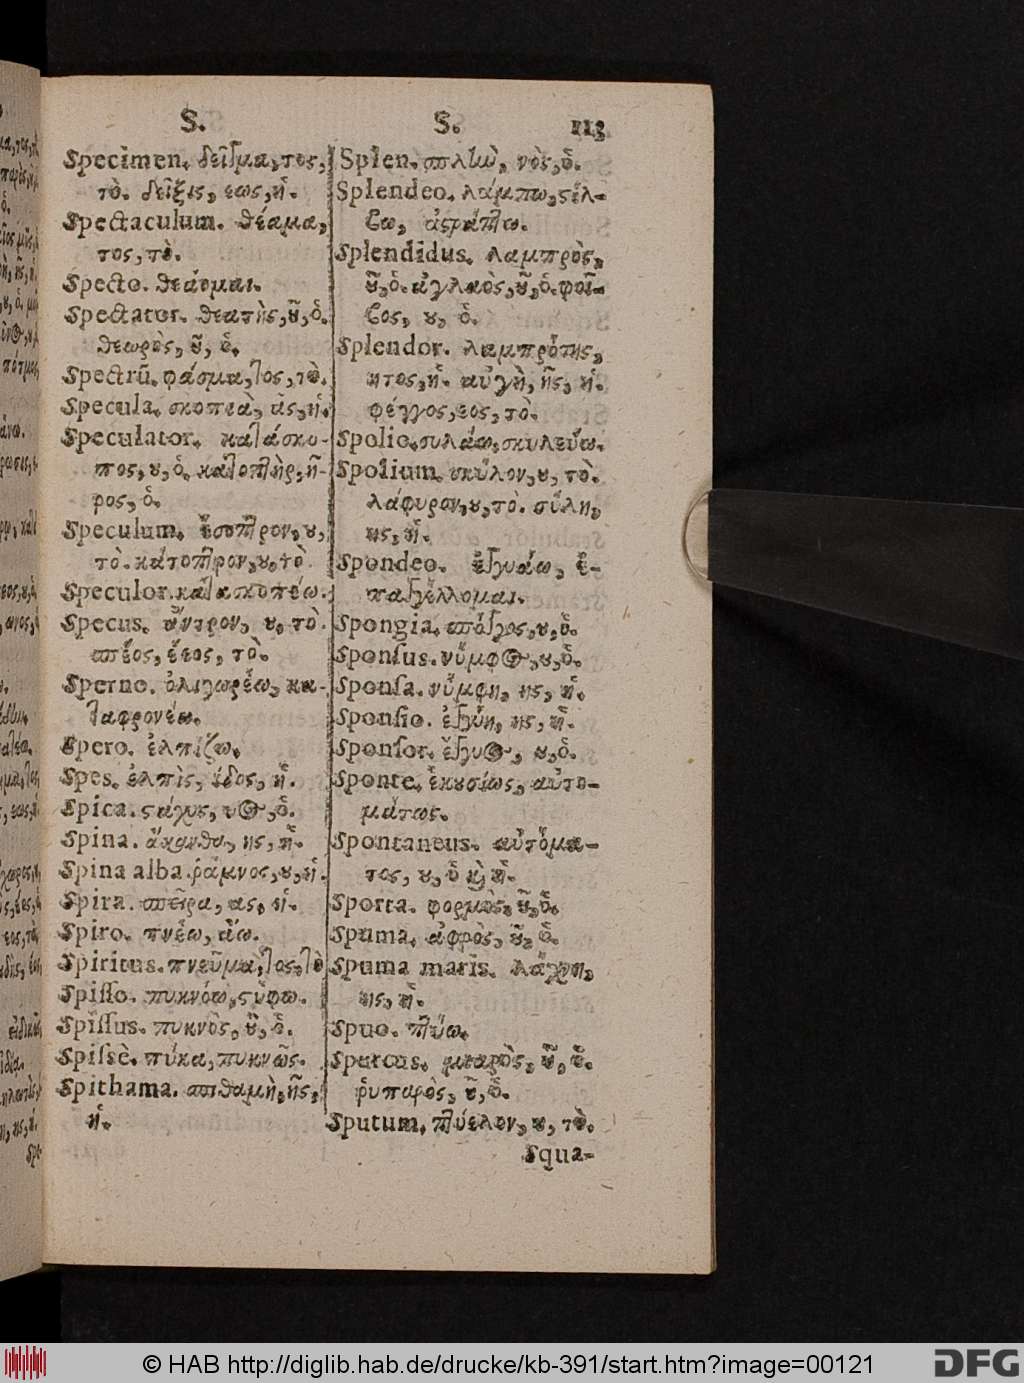 S.
Specimen. δεῖγμα, τος,
τὸ. δεῖξις, εως, ἡ.
Spectaculum. θέαμα,
τος, τὸ.
Specto. θεάομαι.
Spectator. θεατὴς, οῦ, ὁ.
θεωρὸς, οῦ, ὁ.
Spectrū. φάσμα, τος, τὸ.
Specula. σκοπιὰ, ᾶς, ἡ.
Speculator. κατάσκο-
πος, ου, ὁ. κατοπτὴρ, ῆ-
ρος, ὁ.
Speculum. ἔσοπτρον, ου,
τὸ. κάτοπτρον, ου, τὸ.
Speculor. κατασκοπέω.
Specus. ἄντρον, ου, τὸ.
σπέος, έεος, τὸ.
Sperno. ὀλιγωρέω, κα-
ταφρονέω.
Spero. ἐλπίζω.
Spes. ἐλπὶς, ίδος, ἡ.
Spica. στάχυς, υος, ὁ.
Spina. ἄκανθα, ης, ἡ.
Spina alba. ῥάμνος, ου, ἡ.
Spira. σπεῖρα, ας, ἡ.
Spiro. πνέω, ἄω.
Spiritus. πνεῦμα, τος, τὸ
Spisso. πυκνόω, στύφω.
Spissus. πυκνὸς, οῦ, ὁ.
Spissè. πύκα, πυκνῶς.
Spithama. σπιθαμὴ, ῆς,
ἡ.
S. 113
Splen. σπλὴν, νὸς, ὁ.
Splendeo. λάμπω, στίλ-
βω, ἀστράπτω.
Splendidus. λαμπρὸς,
οῦ, ὁ. ἀγλαὸς, οῦ, ὁ. φοῖ-
βος, ου, ὁ.
Splendor. λαμπρότης,
ητος, ἡ. αὐγὴ, ῆς, ἡ.
φέγγος, εος, τὸ.
Spolio. συλάω, σκυλεύω.
Spolium. σκῦλον, ου, τὸ.
λάφυρον, ου, τὸ. σύλη,
ης, ἡ.
Spondeo. ἐγγυάω, ἐ-
παγγέλλομαι.
Spongia. σπόγγος, ου, ὁ.
Sponsus. νύμφος, ου, ὁ.
Sponsa. νύμφη, ης, ἡ.
Sponsio. ἐγγύη, ης, ἡ.
Sponsor. ἔγγυος, ου, ὁ.
Sponte. ἑκουσίως, αὐτο-
μάτως.
Spontaneus. αὐτόμα-
τος, ου, ὁ καὶ ἡ.
Sporta. φορμὸς, οῦ, ὁ.
Spuma. ἀφρὸς, οῦ, ὁ.
Spuma maris. λάχνη,
ης, ἡ.
Spuo. πτύω.
Spurcus. μιαρὸς, οῦ, ὁ.
ῥυπαρὸς, οῦ, ὁ.
Sputum. πτύελον, ου, τὸ.
Squa-
© HAB http://diglib.hab.de/drucke/kb-391/start.htm?image=00121
DFG